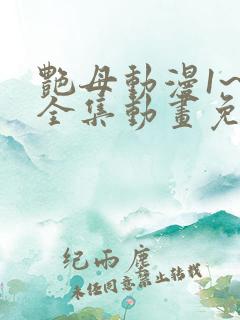 艷母動漫1~
全集動畫免
紀雨塵
未经同意禁止转载